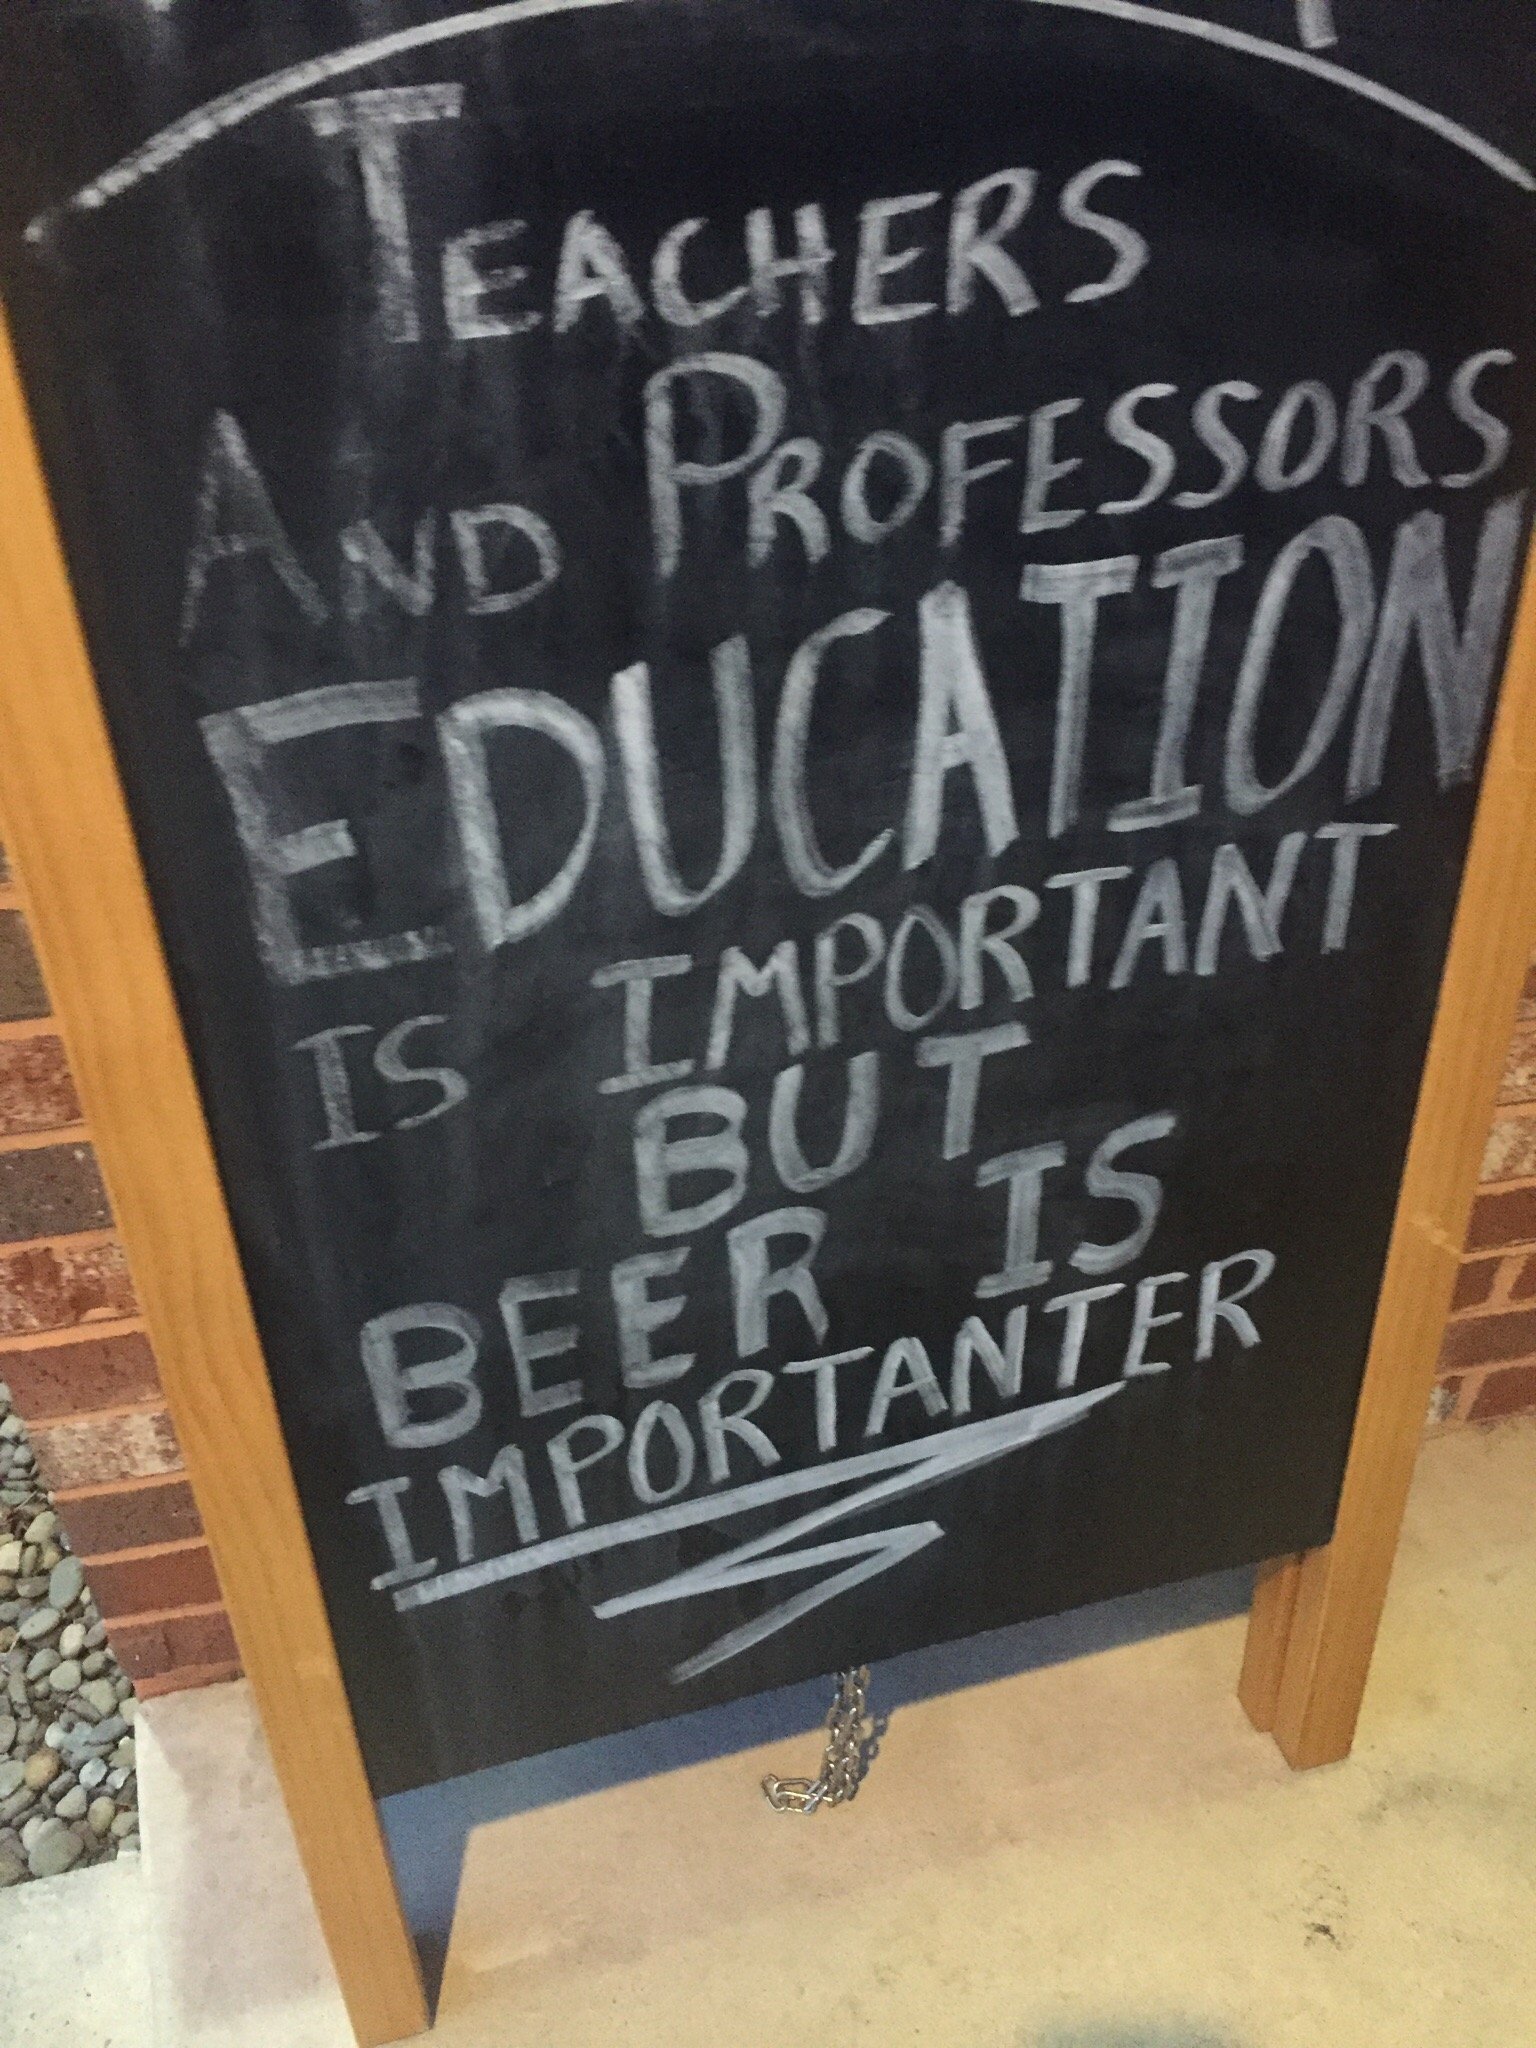 TEACHERS
AND PROFESSORS
EDUCATION
IS IMPORTANT
BUT
BEER IS
IMPORTANTER